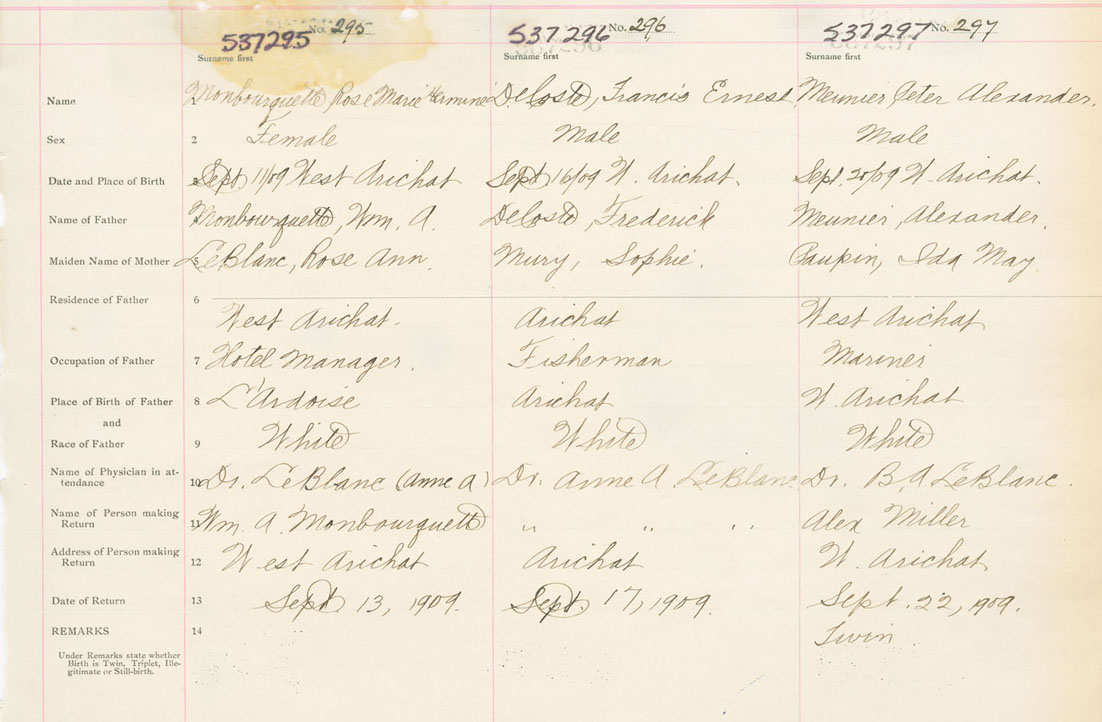 537295 No. 295 537296 No. 296 537297 No. 297
Surname first Surname first Surname first
Name 1 Monbourquette Rose Marie Hermine DeCoste, Francis Ernest Meunier Peter Alexander.
Sex 2 Female Male Male
Date and Place of Birth 3 Sept 11/09 West Arichat Sept 16/09 W. Arichat. Sept. 20/09 W. Arichat.
Name of Father 4 Monbourquette, Wm. A. DeCoste, Frederick Meunier, Alexander.
Maiden Name of Mother 5 LeBlanc, Rose Ann. Mury, Sophie. Paupin, Ida May
Residence of Father 6
West Arichat. Arichat West Arichat
Occupation of Father 7 Hotel Manager. Fisherman Mariner
Place of Birth of Father 8 L'Ardoise Arichat W. Arichat
and
Race of Father 9 White White White
Name of Physician in at-
tendance 10 Dr. LeBlanc (Anne A) Dr. Anne A LeBlanc Dr. B. A LeBlanc.
Name of Person making
Return 11 Wm. A. Monbourquette " " " Alex Miller
Address of Person making
Return 12 West Arichat Arichat W. Arichat
Date of Return 13 Sept 13, 1909. Sept. 17, 1909. Sept. 22, 1909.
REMARKS 14 Twin
Under Remarks state whether
Birth is Twin, Triplet, Ille-
gitimate or Still-birth.